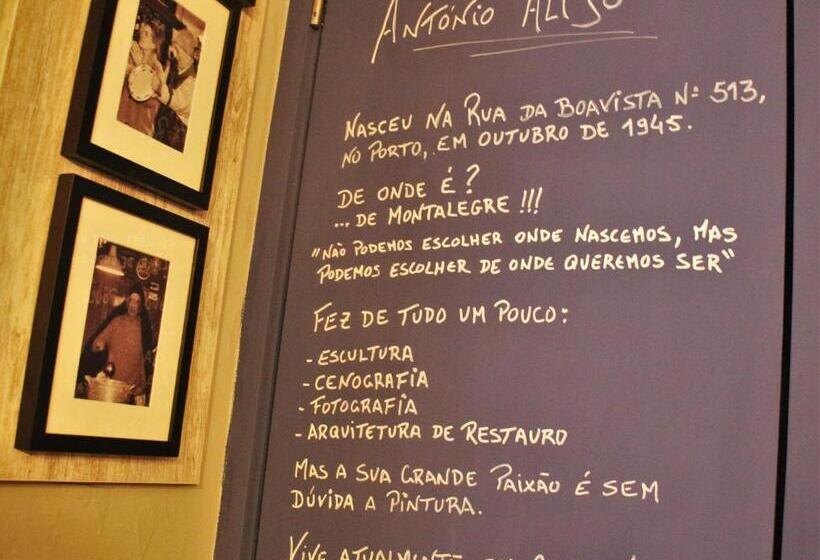 António Alijó
Nasceu na Rua da Boavista Nº 513,
no Porto, em outubro de 1945.
De onde é?
... De Montalegre !!!
"Não podemos escolher onde nascemos, mas
podemos escolher de onde queremos ser"
Fez de tudo um pouco:
- Escultura
- Cenografia
- Fotografia
- Arquitetura de Restauro
Mas a sua grande paixão é sem
dúvida a pintura.
Vive atualmente em